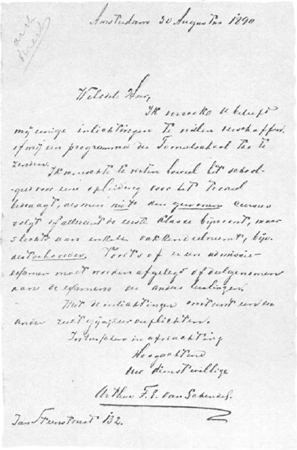 Amsterdam 30 Augustus 1890
WelEd. Heer,
Ik verzoek U beleefd
mij eenige inlichtingen te willen verschaffen,
of mij een programma der Tooneelschool toe te
zenden.
Ik wenschte te weten hoeveel het school-
geld voor een opleiding voor het Tooneel
bedraagt, als men niet den gewonen cursus
volgt of alleen de eerste klasse bijwoont, maar
slechts aan enkele vakken deelneemt, bijv.
Voorts of er een admissie-
examen moet worden afgelegd of deelgenomen
aan de examens der andere leerlingen.
Met de inlichtingen omtrent een en
ander zult gij zeer verplichten.
Inmiddels in afwachting
Hoogachtend
Uw dienstwillige
Arthur F. E. van Schendel.
Jan Steenstraat 182.